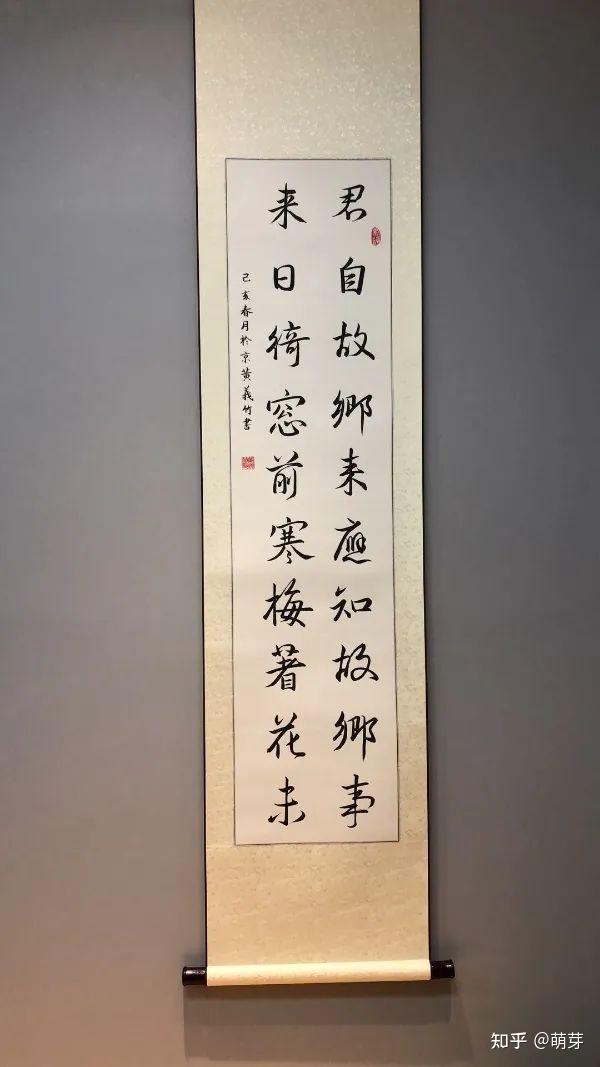 君自故鄉来應知故鄉事
来日倚窓前寒梅著花未
己亥春月於京黄義竹書
知乎 @萌芽